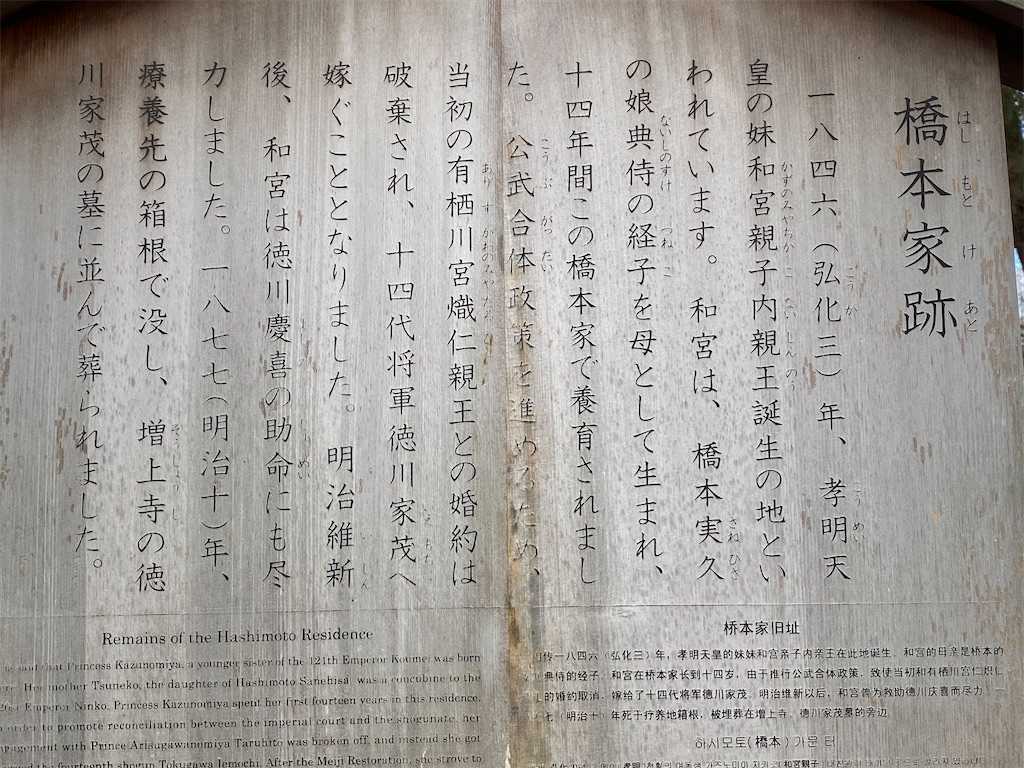 橋本家跡
一八四六（弘化三）年、孝明天
皇の妹和宮親子内親王誕生の地とい
われています。和宮は、橋本実久
の娘典侍の経子を母として生まれ、
十四年間この橋本家で養育されまし
た。公武合体政策を進めるため、
当初の有栖川宮熾仁親王との婚約は
破棄され、十四代将軍徳川家茂へ
嫁ぐこととなりました。明治維新
後、和宮は徳川慶喜の助命にも尽
力しました。一八七七（明治十）年、
療養先の箱根で没し、増上寺の徳
川家茂の墓に並んで葬られました。
Remains of the Hashimoto Residence
said that Princess Kazunomiya, a younger sister of the 121th Emperor Koumei was born
Her mother Tsuneko, the daughter of Hashimoto Sanehisa was a concubine to the
Emperor Ninko. Princess Kazunomiya spent her first fourteen years in this residence.
order to promote reconciliation between the imperial court and the shogunate, her
engagement with Prince Arisugawanomiya Taruhito was broken off, and instead she got
the fourteenth shogun Tokugawa Iemochi. After the Meiji Restoration, she strove to
桥本家旧址
传一八四六（弘化三）年，孝明天皇的妹妹和宫亲子内亲王在此地诞生。和宫的母亲是桥本的
典侍的经子。和宫在桥本家长到十四岁。由于推行公武合体政策，致使当初和有栖川宫仁炽
的婚约取消，嫁给了十四代将军德川家茂。明治维新以后，和宫曾为救助德川庆喜而尽力。
七（明治十）年死于疗养地箱根，被埋葬在增上寺，德川家茂墓的旁边。
하시모토（橋本）가문 터